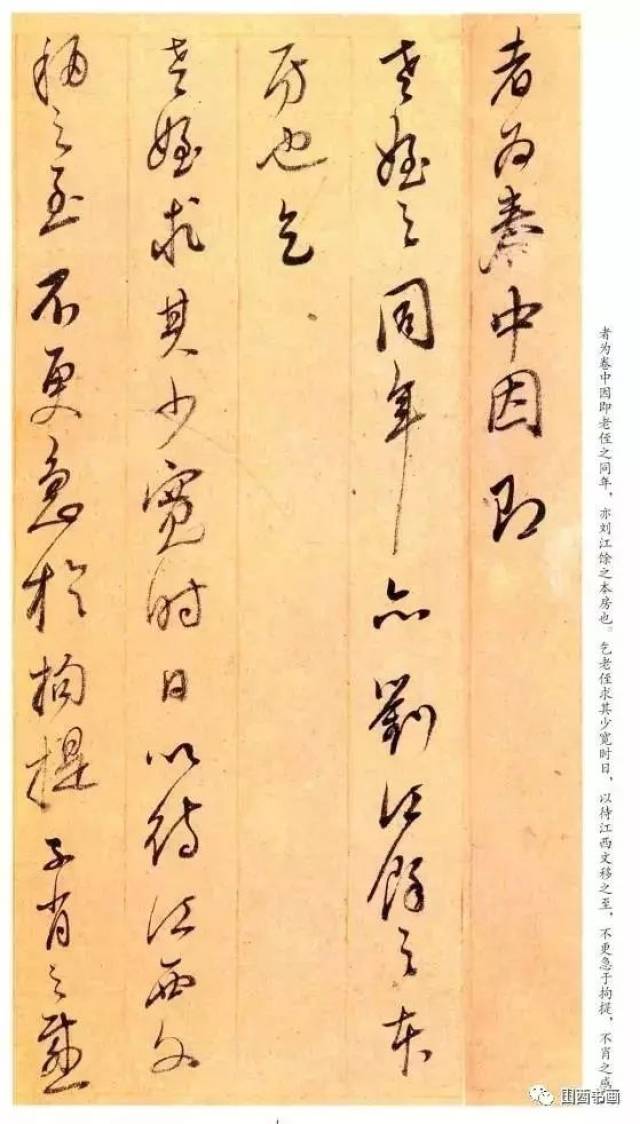 者为秦中因即
老侄之同年亦劉江餘之本
房也乞
老侄求其少寬時日以待江西文
移之至不更急於拘提不肖之感
者为卷中因即老侄之同年，亦刘江馀之本房也。乞老侄求其少宽时日，以待江西文移之至，不更急于拘提，不肖之感
田酉书画